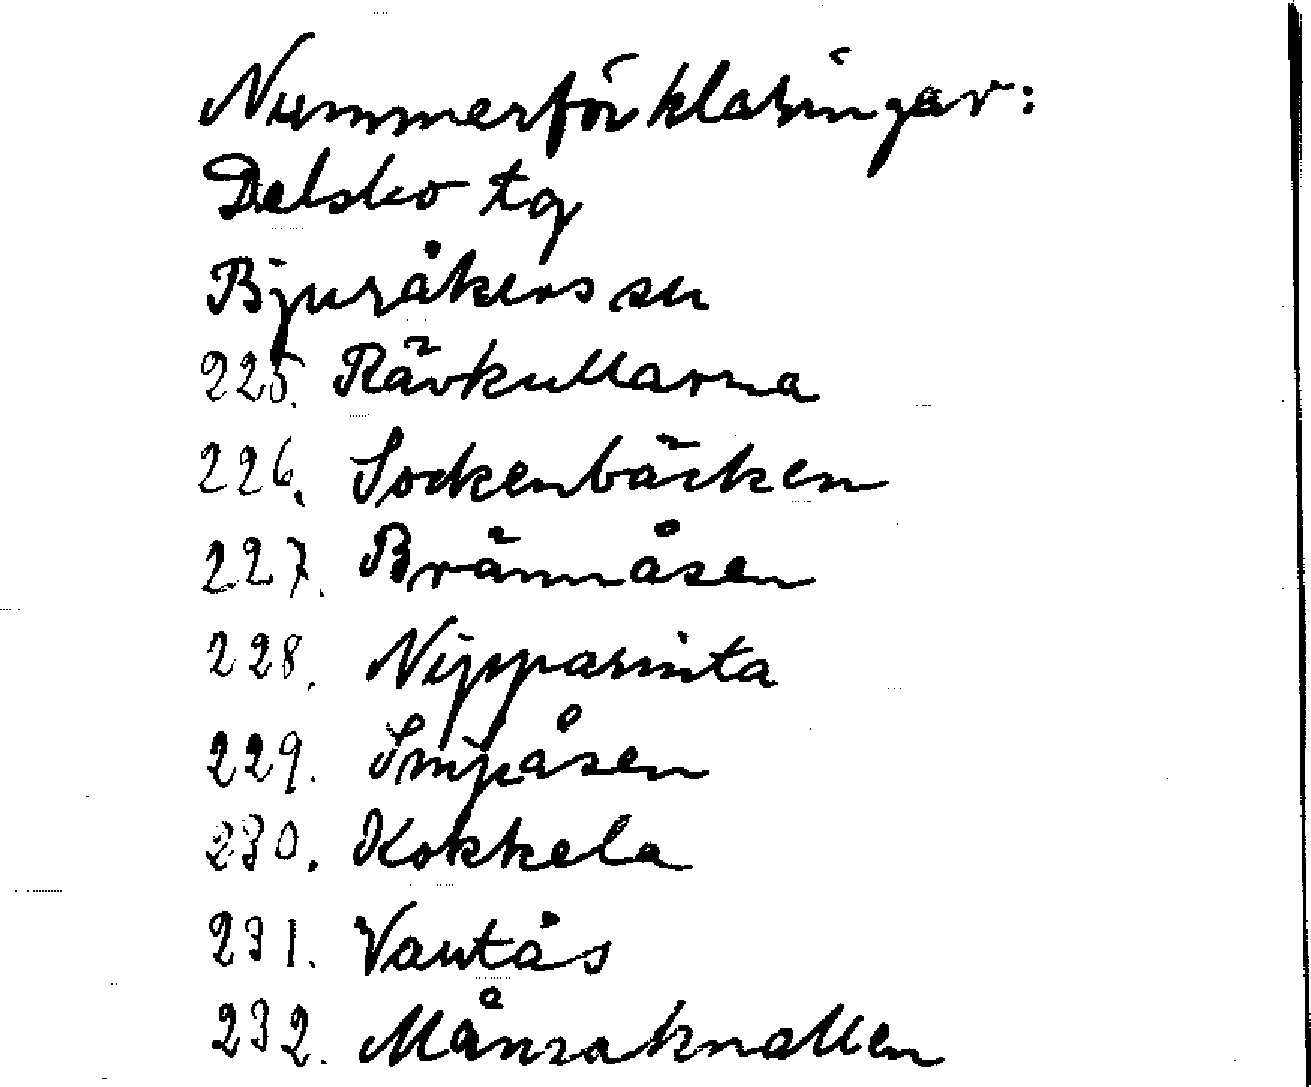 Nummerförklaringar:
Delsbo tg
Bjuråkers sn
225. Rävkullarna
226. Sockenbäcken
227. Brännåsen
228. Nipparinta
229. Snipåsen
230. Kokkela
231. Vantås
232. Månsaknallen